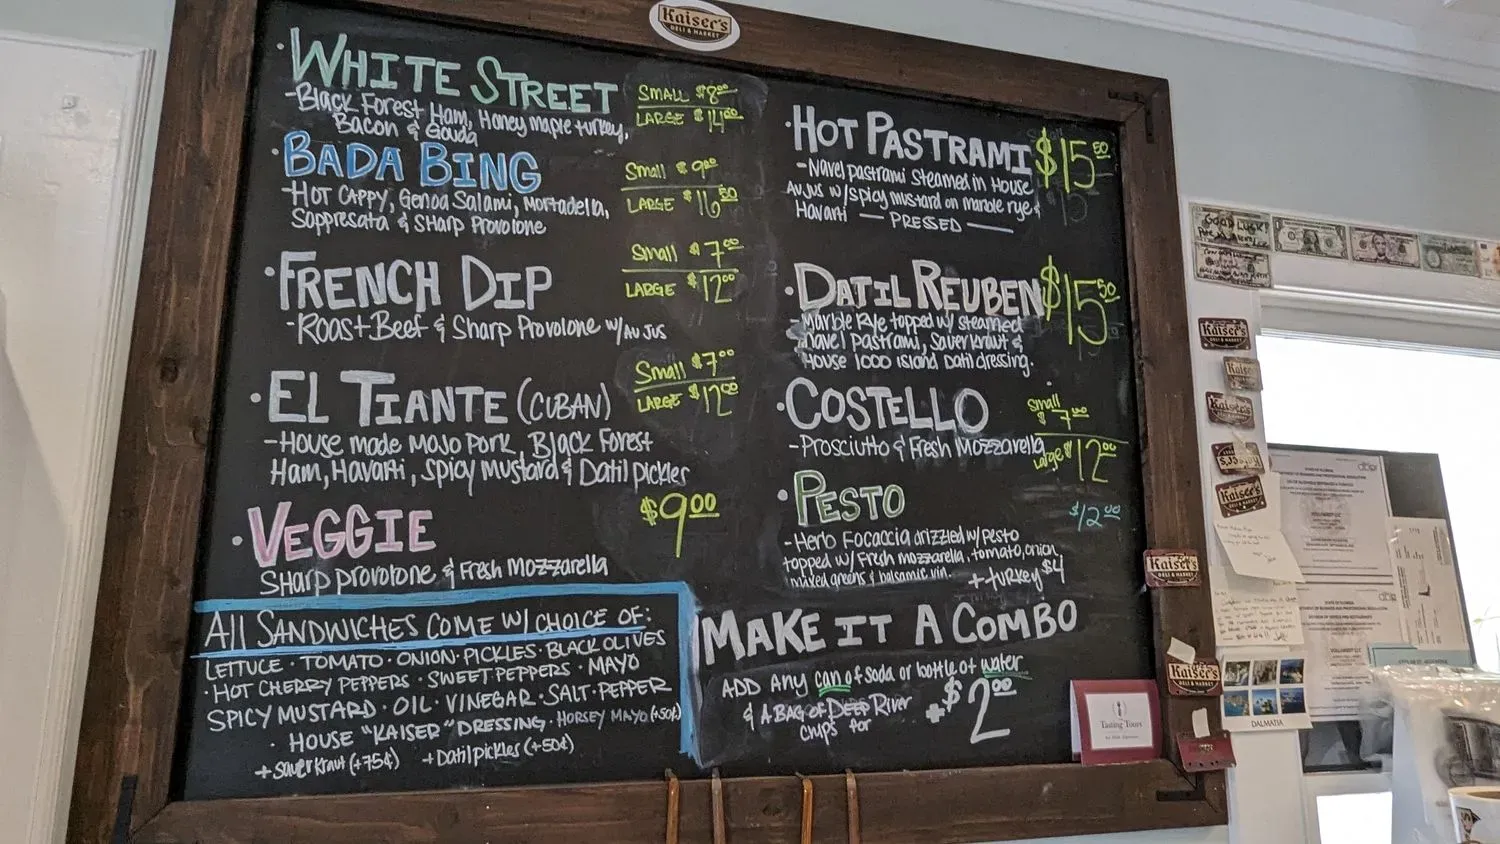 Kaiser's
DELI & MARKET
· WHITE STREET
SMALL $8.00
LARGE $14.50
-Black Forest Ham, Honey maple turkey,
Bacon & Gouda
· BADA BING
Small $9.00
LARGE $16.50
-HOT CAPPY, Genoa Salami, Mortadella,
Soppresata & SHarp Provolone
· FRENCH DIP
Small $7.00
LARGE $12.00
-Roast Beef & Sharp Provolone w/AU JUS
· EL TIANTE (CUBAN)
Small $7.00
LARGE $12.00
-House made Mojo Pork, Black Forest
Ham, Havarti, spicy mustard & Datil pickles
· VEGGIE
$9.00
SHarp provolone & Fresh Mozzarella
All SANDWICHES COME W/ CHOICE OF:
LETTUCE · TOMATO · ONION · PICKLES · BLACK OLIVES
· HOT CHERRY PEPPERS · SWEET PEPPERS · MAYO
SPICY MUSTARD · OIL · VINEGAR · SALT · PEPPER
· HOUSE "KAISER" DRESSING · HORSEY MAYO (+50¢)
+ sauerkraut (+75¢) + Datil pickles (+50¢)
· HOT PASTRAMI
$15.50
-Navel pastrami steamed in House
AU JUS w/spicy mustard on marble rye &
Havarti — PRESSED —
· DATIL REUBEN
$15.50
-Marble Rye topped w/ steamed
navel pastrami, sauerkraut &
House 1000 island Datil dressing.
· COSTELLO
Small
$7.00
Large $12.00
-Prosciutto & Fresh Mozzarella
· PESTO
$12.00
-Herb Focaccia drizzled w/pesto
topped w/ Fresh mozzarella, tomato, onion,
mixed greens & balsamic vin. + turkey $4
MAKE IT A COMBO
ADD Any can of soda or bottle of water
& A BAG OF DEEP River
chips for
+$2.00
Tasting Tours
GOOD LUCK!
Kaiser's
Kaiser's
Kaiser's
Kaiser's
Kaiser's
Kaiser's
DALMATIA